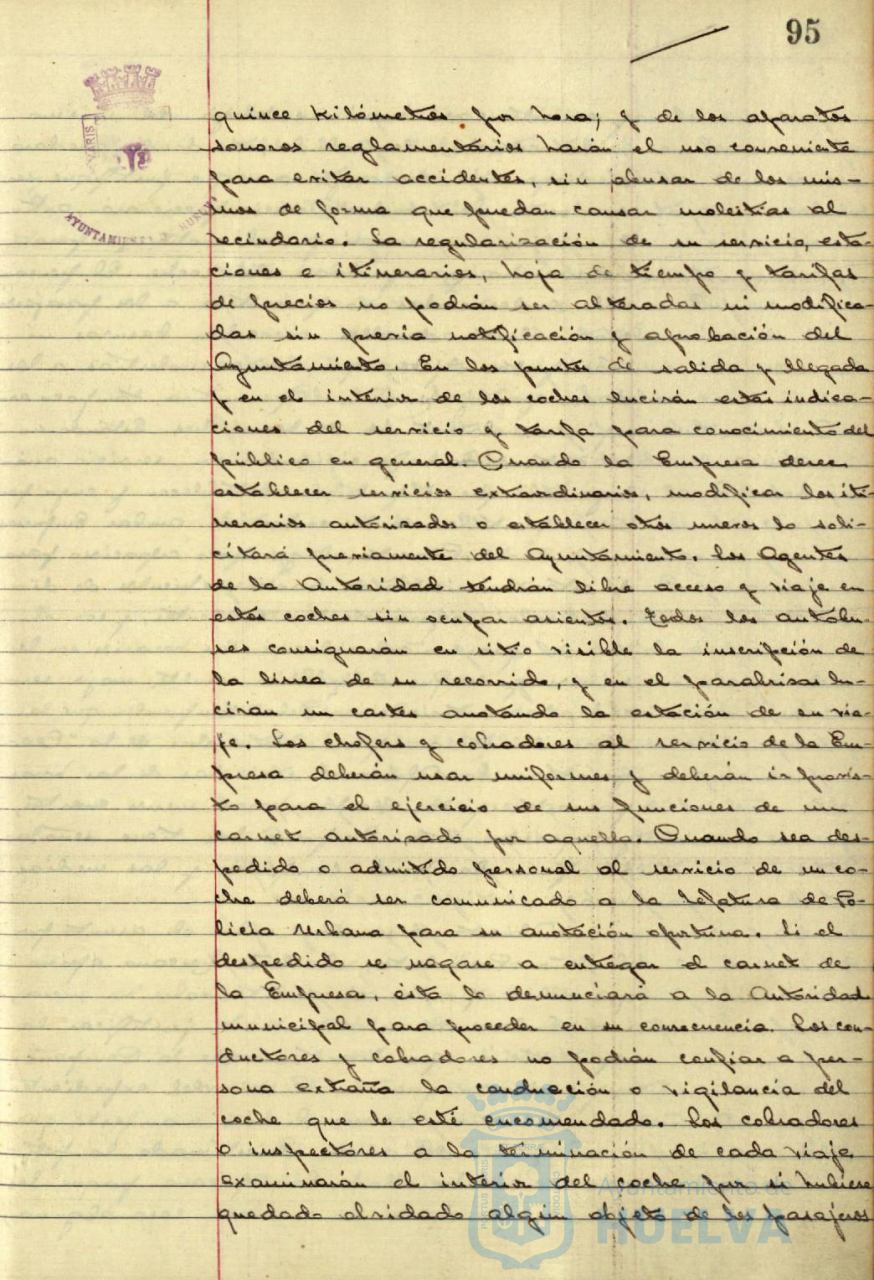 95
quince kilómetros por hora; y de los aparatos
sonoros reglamentarios harán el uso conveniente
para evitar accidentes, sin abusar de los mis-
mos de forma que puedan causar molestias al
vecindario. La regularización de su servicio, esta-
ciones e itinerarios, hoja de tiempo y tarifas
de precios no podrán ser alteradas ni modifica-
das sin previa notificación y aprobación del
Ayuntamiento. En los puntos de salida y llegada
y en el interior de los coches lucirán estas indica-
ciones del servicio y tarifa para conocimiento del
público en general. Cuando la Empresa desee
establecer servicios extraordinarios, modificar los iti-
nerarios autorizados o establecer otros nuevos lo soli-
citará previamente del Ayuntamiento. Los Agentes
de la Autoridad tendrán libre acceso y viaje en
estos coches sin ocupar asientos. Todos los autobu-
ses consignarán en sitio visible la inscripción de
la línea de su recorrido, y en el parabrisas lu-
cirán un cartel anotando la estación de su via-
je. Los chofers y cobradores al servicio de la Em-
presa deberán usar uniformes, y deberán ir provis-
to para el ejercicio de sus funciones de un
carnet autorizado por aquella. Cuando sea des-
pedido o admitido personal al servicio de un co-
che deberá ser comunicado a la Jefatura de Po-
licía Urbana para su anotación oportuna. Si el
despedido se negase a entregar el carnet de
la Empresa, ésta lo denunciará a la Autoridad
municipal para proceder en su consecuencia. Los con-
ductores y cobradores no podrán confiar a per-
sona extraña la conducción o vigilancia del
coche que le esté encomendado. Los cobradores
o inspectores a la terminación de cada viaje
examinarán el interior del coche por si hubiese
quedado olvidado algún objeto de los pasajeros
AYUNTAMIENTO HUELVA
Ayuntamiento de
HUELVA